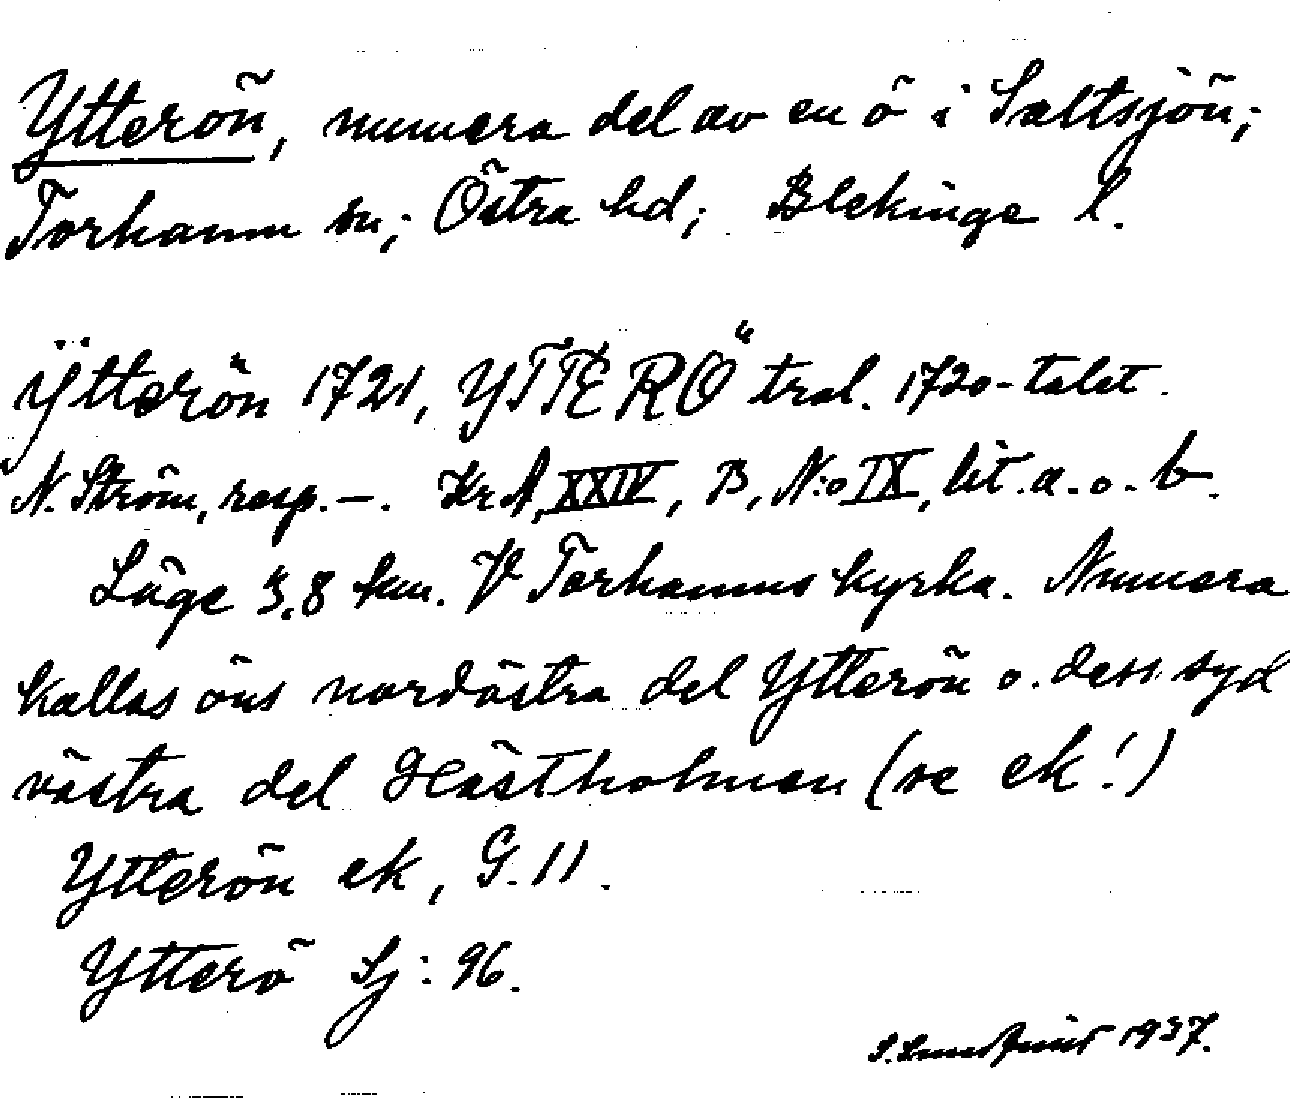 Ytterön, numera del av en ö i Saltsjön;
Torhamn sn; Östra hd; Blekinge l.
Ÿtterön 1721, YTTERÖ tral. 1720-talet.
N. Ström, resp. –. Kr A, XXIV, B, N:o IX, lit. a. o. b.
Läge 3,8 km. V Torhamns kyrka. Numera
kallas öns nordöstra del Ytterön o. dess syd
västra del Hästholmen (se ek!)
Ytterön ek, G. 11.
Ytterö Sj: 96.
1937.